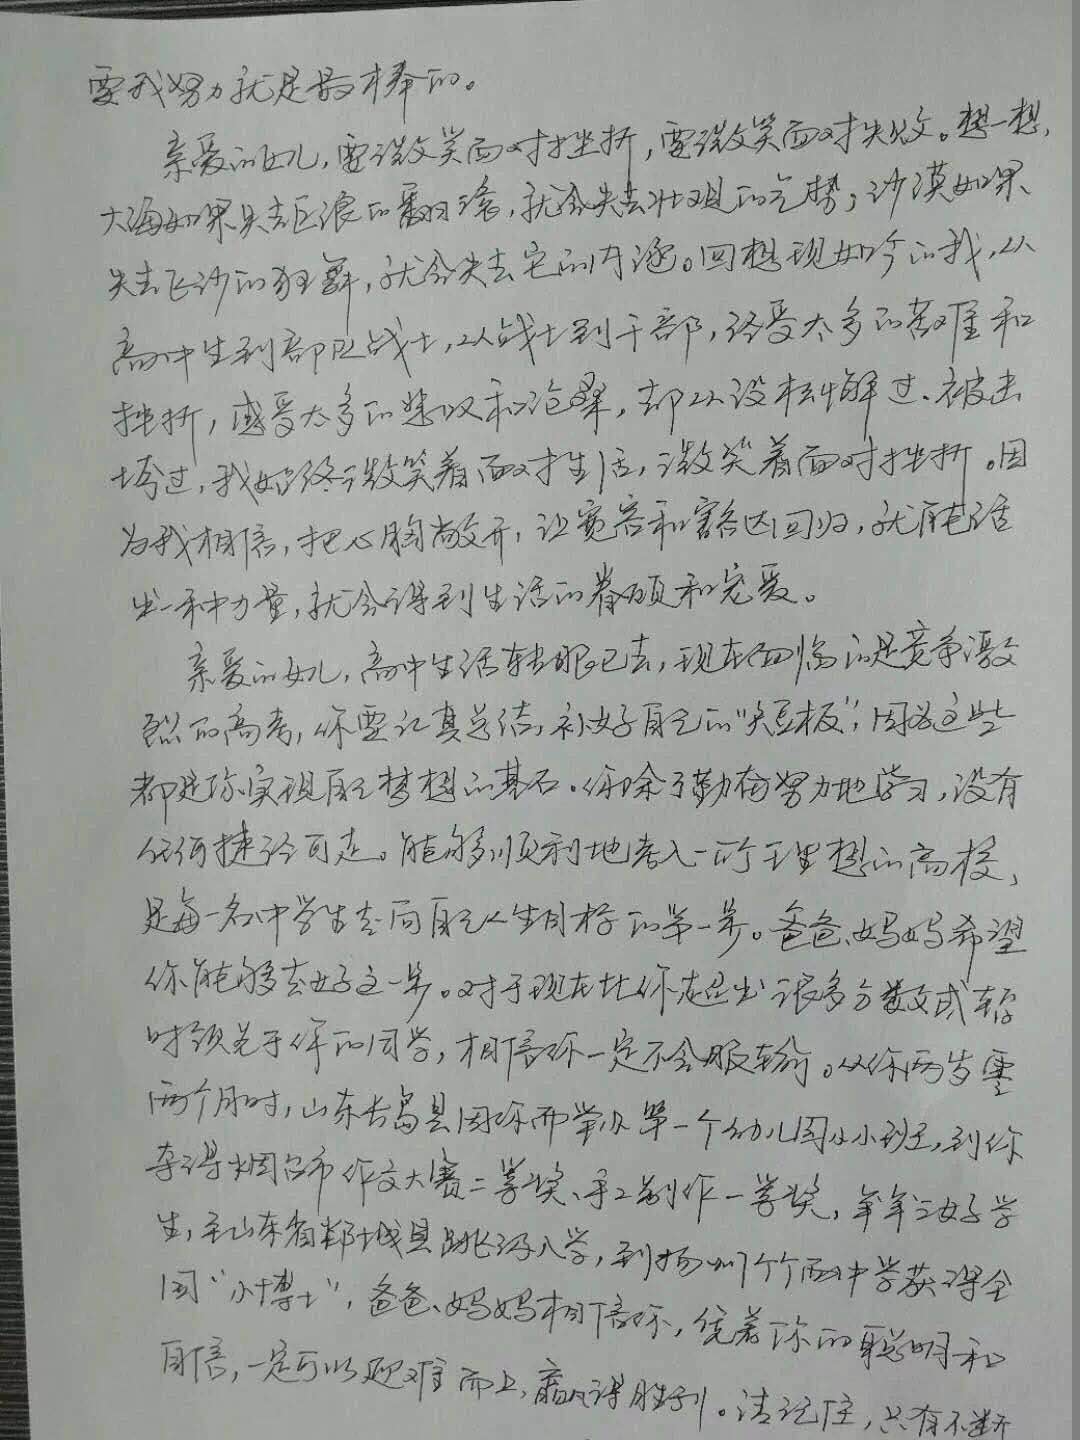 要我努力就是最棒的。
亲爱的女儿，要微笑面对挫折，要微笑面对失败。想一想，
大海如果失去巨浪的翻滚，就会失去壮观的气势；沙漠如果
失去飞沙的狂舞，就会失去它的内涵。回想现如今的我，从
高中生到部队战士，从战士到干部，经受太多的苦难和
挫折，感受太多的悲叹和沧桑，却从没松懈过、被击
垮过，我始终微笑着面对生活，微笑着面对挫折。因
为我相信，把心胸敞开，让宽容和豁达回归，就能活
出一种力量，就会得到生活的眷顾和宠爱。
亲爱的女儿，高中生活转眼已去，现在面临的是竞争激
烈的高考，你要认真总结，补好自己的“短板”，因为这些
都是你实现自己梦想的基石。你除了勤奋努力地学习，没有
任何捷径可走。能够顺利地考入一所理想的高校，
是每一名中学生走向自己人生目标的第一步。爸爸、妈妈希望
你能够走好这一步。对于现在比你超出很多分数或暂
时领先于你的同学，相信你一定不会服输。从你两岁零
两个月时，山东长岛县因你而举办第一个幼儿园小小班，到你
夺得烟台市作文大赛二等奖、手工制作一等奖，年年三好学
生，到山东省郯城县跳级入学，到扬州竹西中学获得全
国“小博士”，爸爸、妈妈相信你，凭着你的聪明和
自信，一定可以迎难而上，赢得胜利。请记住，只有不断